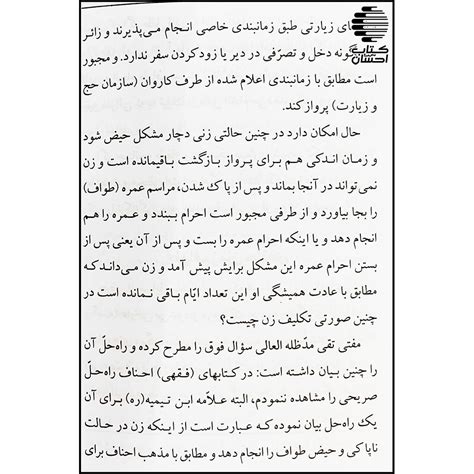 کتاب
احسان
های زیارتی طبق زمانبندی خاصی انجام می‌پذیرند و زائر
گونه دخل و تصرّفی در دیر یا زود کردن سفر ندارد. و مجبور
است مطابق با زمانبندی اعلام شده از طرف کاروان (سازمان حج
و زیارت) پرواز کند.
حال امکان دارد در چنین حالتی زنی دچار مشکل حیض شود
و زمان اندکی هم برای پرواز بازگشت باقیمانده است و زن
نمی‌تواند در آنجا بماند و پس از پاک شدن، مراسم عمره (طواف)
را بجا بیاورد و از طرفی مجبور است احرام ببندد و عمره را هم
انجام دهد و یا اینکه احرام عمره را بست و پس از آن یعنی پس از
بستن احرام عمره این مشکل برایش پیش آمد و زن می‌داند که
مطابق با عادت همیشگی او این تعداد ایّام باقی نمانده است در
چنین صورتی تکلیف زن چیست؟
مفتی تقی مدّظله العالی سؤال فوق را مطرح کرده و راه‌حلّ آن
را چنین بیان داشته است: در کتابهای (فقهی) احناف راه‌حلّ
صریحی را مشاهده ننمودم، البته علاّمه ابن تیمیه(ره) برای آن
یک راه‌حل بیان نموده که عبارت است از اینکه زن در حالت
ناپاکی و حیض طواف را انجام دهد و مطابق با مذهب احناف برای